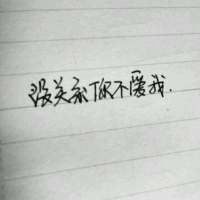 没关系你不爱我.